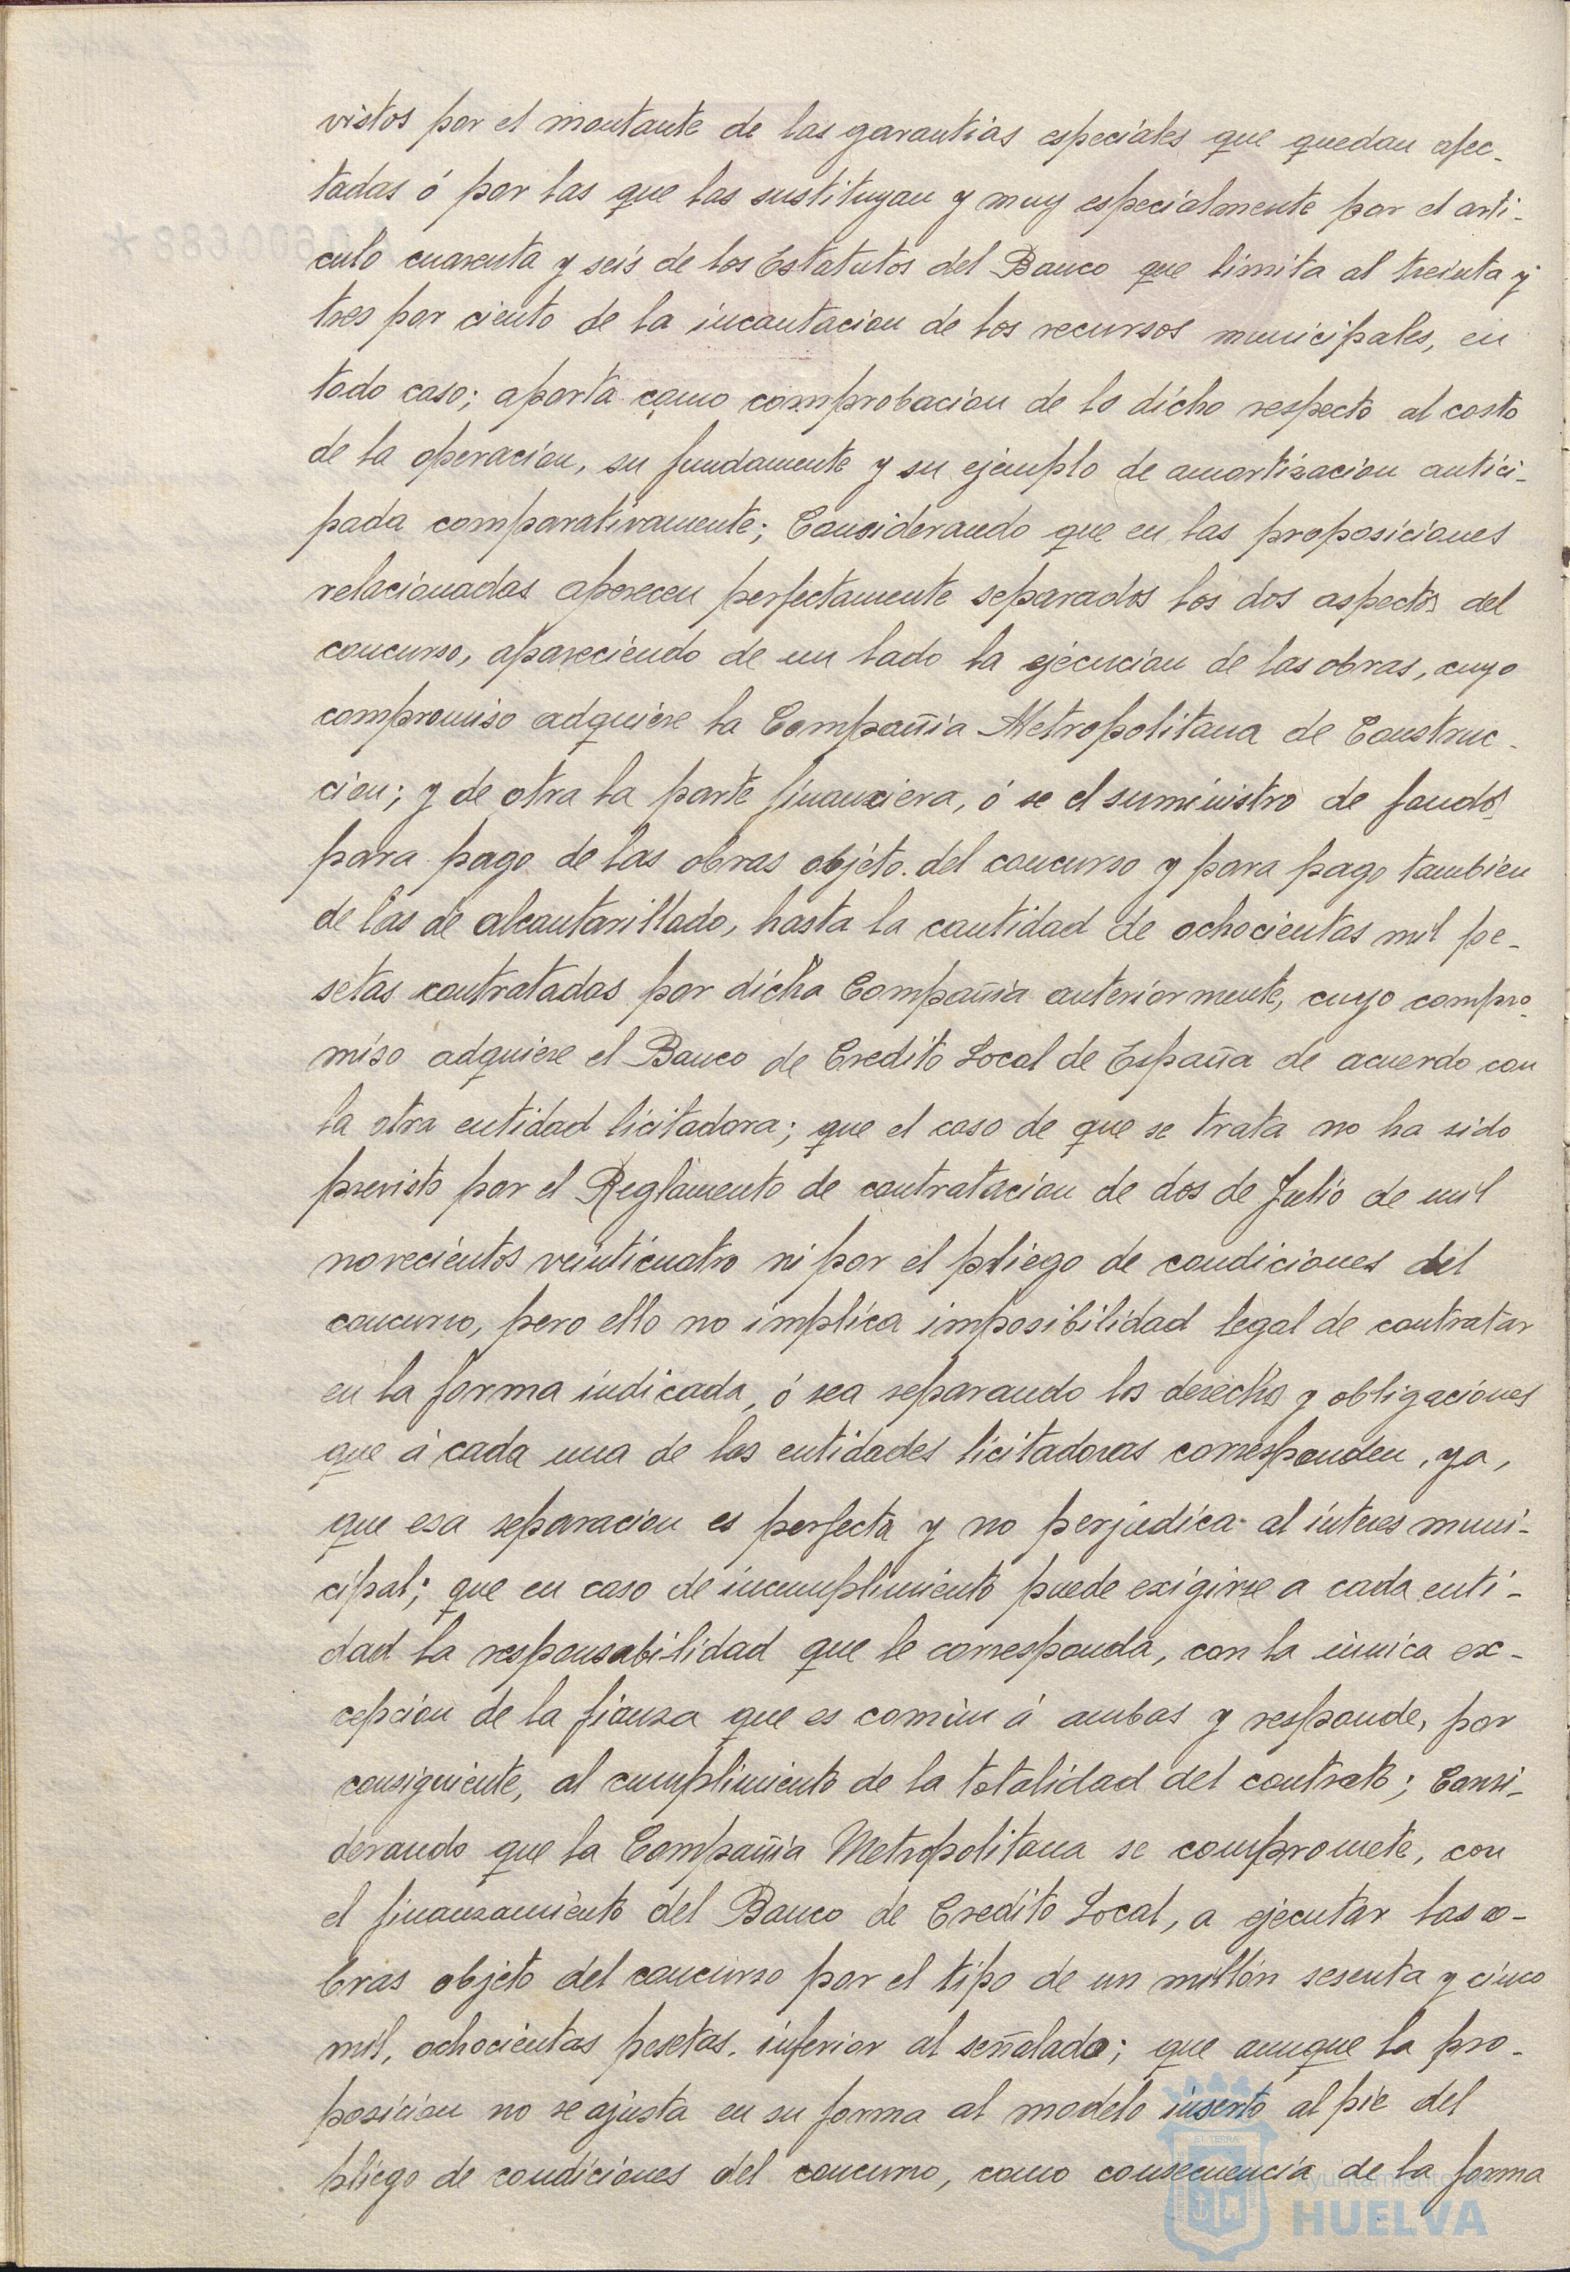 vistos por el montante de las garantias especiales que quedan afec-
tadas ó por las que las sustituyan y muy especialmente por el arti-
culo cuarenta y seis de los Estatutos del Banco que limita al treinta y
tres por ciento de la incautacion de los recursos municipales, en
todo caso; aporta como comprobacion de lo dicho respecto al costo
de la operacion, su fundamente y su ejemplo de amortizacion antici-
pada comparativamente; Considerando que en las proposiciones
relacionadas aparecen perfectamente separados los dos aspectos del
concurso, apareciendo de un lado la ejecucion de las obras, cuyo
compromiso adquiere la Compañia Metropolitana de Construc-
cion; y de otra la parte financiera, ó se el suministro de fondos
para pago de las obras objeto del concurso y para pago tambien
de las de alcantarillado, hasta la cantidad de ochocientas mil pe-
setas contratadas por dicha Compañia anteriormente, cuyo compro-
miso adquiere el Banco de Credito Local de España de acuerdo con
la otra entidad licitadora; que el caso de que se trata no ha sido
previsto por el Reglamento de contratacion de dos de Julio de mil
novecientos veinticuatro ni por el pliego de condiciones del
concurso, pero ello no implica imposibilidad legal de contratar
en la forma indicada, ó sea separando los derechos y obligaciones
que á cada una de las entidades licitadoras corresponden, ya,
que esa separacion es perfecta y no perjudica al interes muni-
cipal; que en caso de incumplimiento puede exigirse a cada enti-
dad la responsabilidad que le corresponda, con la única ex-
cepcion de la fianza que es común á ambas y responde, por
consiguiente, al cumplimiento de la totalidad del contrato; Consi-
derando que la Compañia Metropolitana se compromete, con
el finanzamiento del Banco de Credito Local, a ejecutar las o-
bras objeto del concurso por el tipo de un millón sesenta y cinco
mil, ochocientas pesetas. inferior al señalado; que aunque la pro-
posicion no se ajusta en su forma al modelo inserto al pie del
pliego de condiciones del concurso, como consecuencia de la forma
Ayuntamiento de
HUELVA